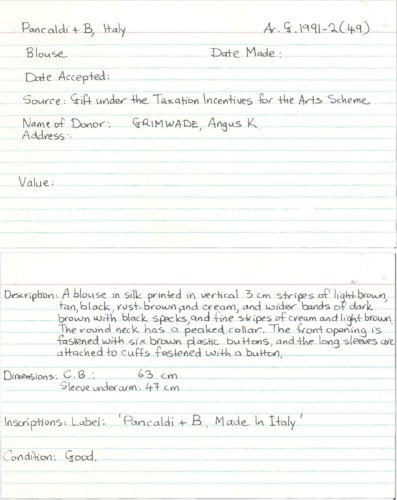 Pancaldi + B, Italy Ar. G. 1991-2(49)
Blouse Date Made:
Date Accepted:
Source: Gift under the Taxation Incentives for the Arts Scheme
Name of Donor: GRIMWADE, Angus K
Address:
Value:
Description: A blouse in silk printed in vertical 3 cm stripes of light brown,
tan, black, rust-brown and cream, and wider bands of dark
brown with black specks, and fine stripes of cream and light brown.
The round neck has a peaked collar. The front opening is
fastened with six brown plastic buttons, and the long sleeves are
attached to cuffs fastened with a button.
Dimensions: C.B.: 63 cm
Sleeve underarm: 47 cm
Inscriptions: Label: 'Pancaldi + B, Made In Italy'
Condition: Good.